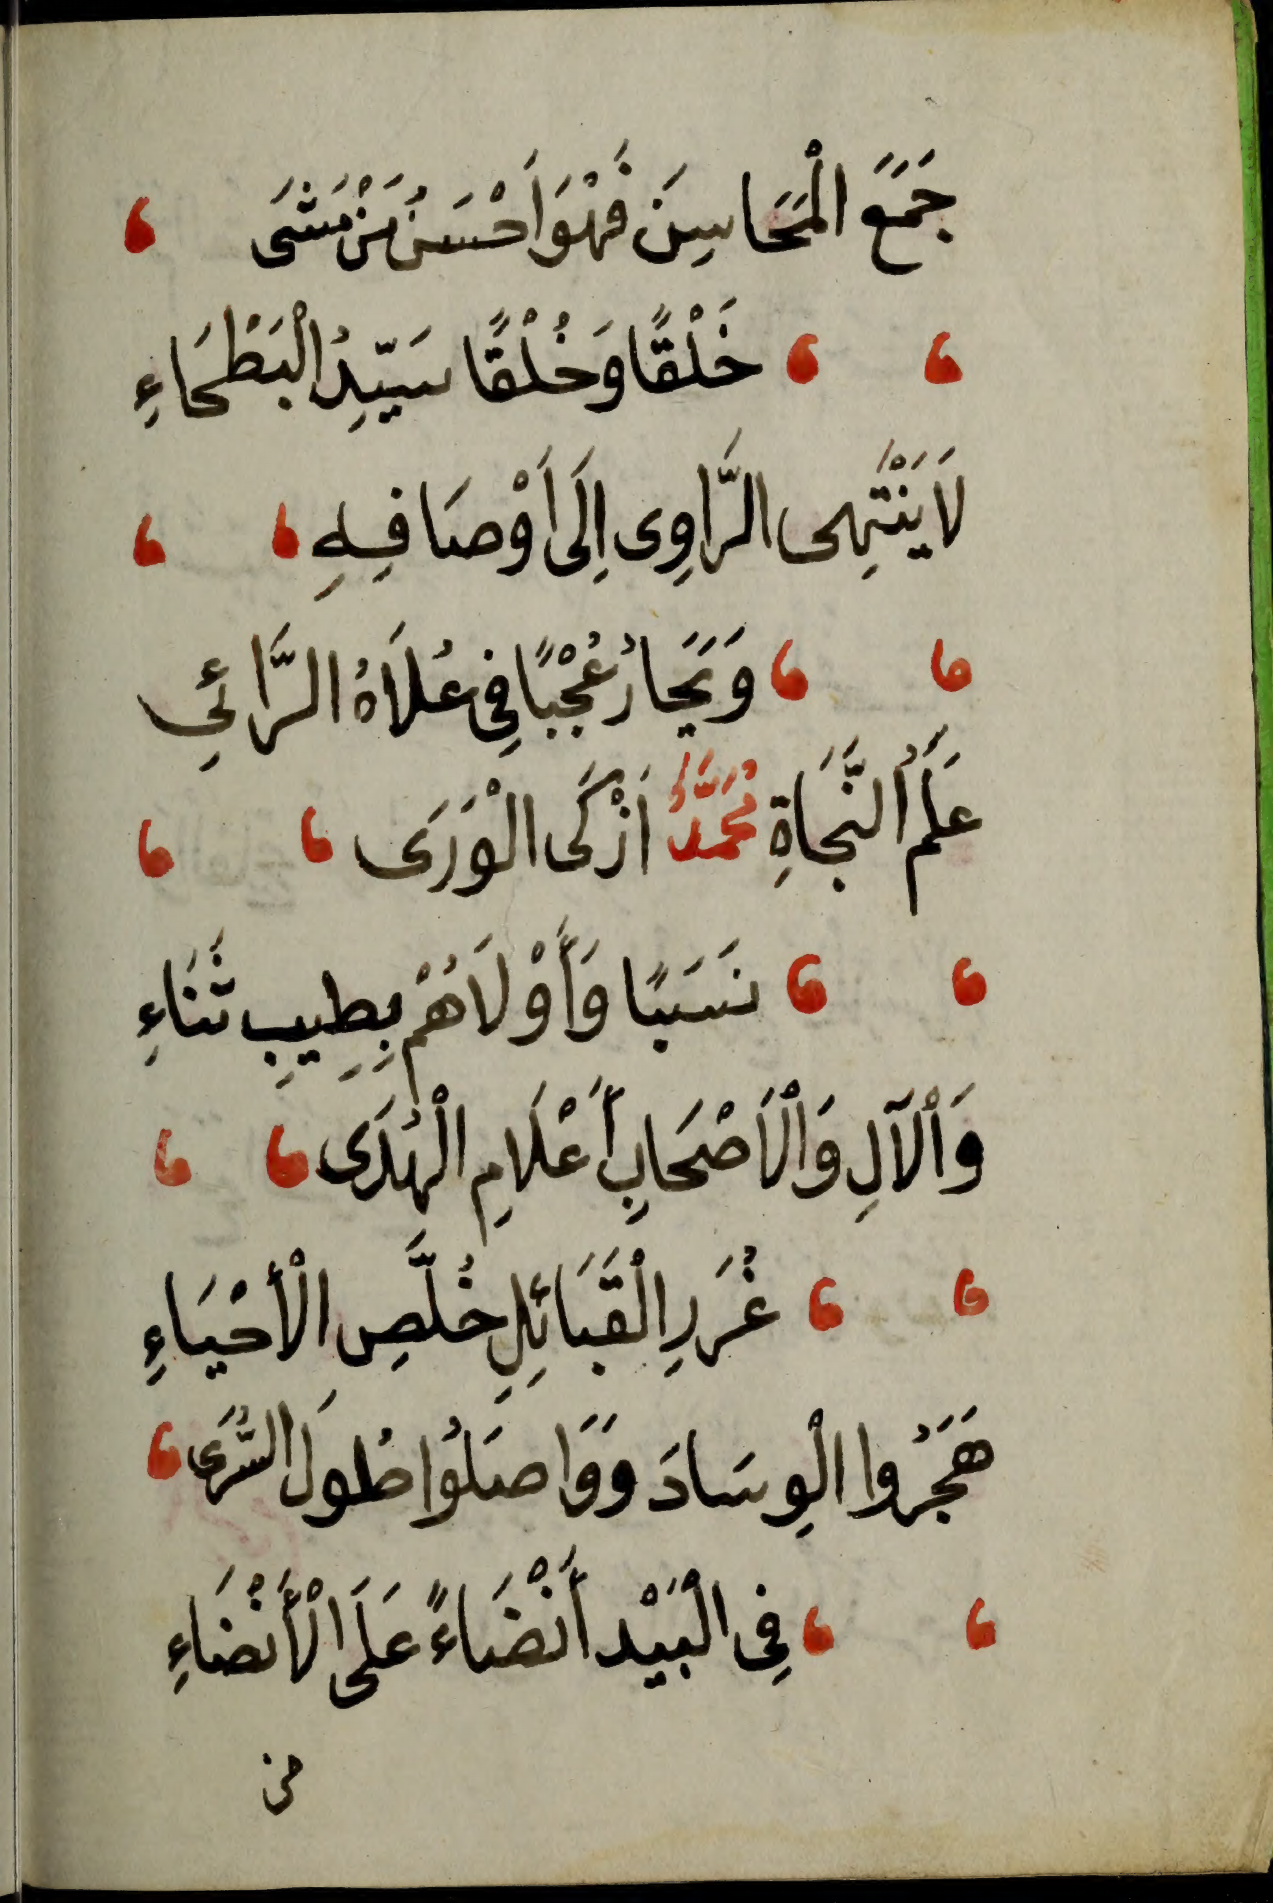 جَمَعَ الْمَحَاسِنَ فَهْوَ اَحْسَنُ مَنْ مَشَى
خَلْقًا وَخُلْقًا سَيِّدُ الْبَطْحَاءِ
لَا يَنْتَهِى الرَّاوِى اِلَى اَوْصَافِهِ
وَيَحَارُ عُجْبًا فِى عُلَاهُ الرَّائِى
عَلَمُ النَّجَاةِ مُحَمَّدٌ اَزْكَى الْوَرَى
نَسَبًا وَأَوْلَاهُمْ بِطِيبِ ثَنَاءِ
وَالْآلِ وَالْاَصْحَابِ أَعْلَامِ الْهُدَى
غُرَرِ الْقَبَائِلِ خُلَّصِ الْأَحْيَاءِ
هَجَرُوا الْوِسَادَ وَوَاصَلُوا طُولَ السُّرَى
فِى الْبَيْد أَنْضَاءً عَلَى الْأَنْضَاءِ
من